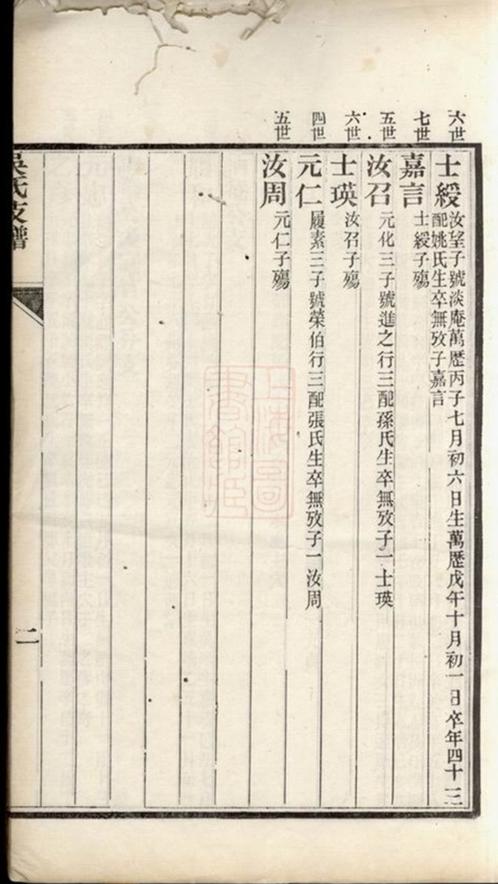 六世
士綬
汝望子號淡庵萬歷丙子七月初六日生萬歷戊午十月初一日卒年四十三
配姚氏生卒無攷子嘉言
七世
嘉言
士綬子殤
五世
汝召
元化三子號進之行三配孫氏生卒無攷子一士瑛
六世
士瑛
汝召子殤
四世
元仁
履素三子號榮伯行三配張氏生卒無攷子一汝周
五世
汝周
元仁子殤
吳氏支譜
二
上海圖書館藏